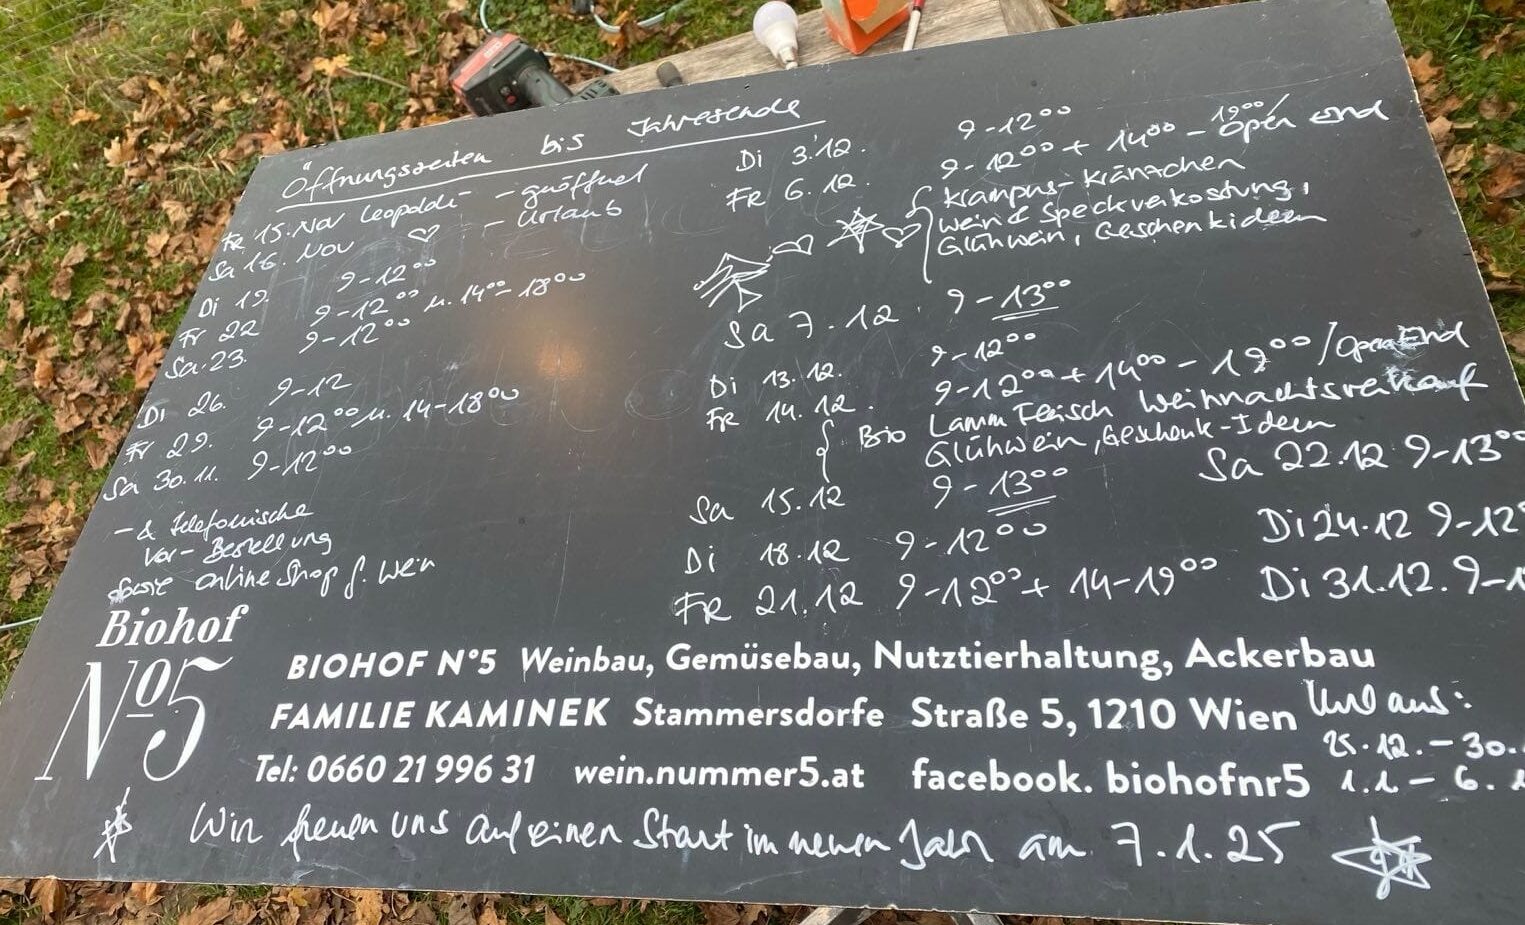 Öffnungszeiten bis Jahresende
Fr 15. Nov Leopoldi - geöffnet
Sa 16. Nov - Urlaub
Di 19. 9-12⁰⁰
Fr 22 9-12⁰⁰ u. 14⁰⁰-18⁰⁰
Sa. 23. 9-12⁰⁰
Di 26. 9-12
Fr 29. 9-12⁰⁰ u. 14-18⁰⁰
Sa 30.11. 9-12⁰⁰
- & telefonische
Vor-Bestellung
sowie online Shop f. Wein
Di 3.12. 9-12⁰⁰
FR 6.12. 9-12⁰⁰ + 14⁰⁰ - 19⁰⁰/ Open End
Krampus-Kränzchen
Wein & Speckverkostung,
Glühwein, Geschenkideen
Sa 7.12. 9-13⁰⁰
Di 13.12. 9-12⁰⁰
FR 14.12. 9-12⁰⁰ + 14⁰⁰ - 19⁰⁰/Open End
Bio Lamm Fleisch Weihnachtsverkauf
Glühwein, Geschenk-Ideen
Sa 15.12 9-13⁰⁰
Di 18.12 9-12⁰⁰
FR 21.12 9-12⁰⁰ + 14-19⁰⁰
Sa 22.12 9-13⁰⁰
Di 24.12 9-12
Di 31.12. 9-1
Biohof
Nº5
BIOHOF N°5 Weinbau, Gemüsebau, Nutztierhaltung, Ackerbau
FAMILIE KAMINEK Stammersdorfe Straße 5, 1210 Wien
Tel: 0660 21 996 31 wein.nummer5.at facebook. biohofnr5
Urlaub:
25.12. - 30.
1.1. - 6.1
Wir freuen uns auf einen Start im neuen Jahr am 7.1.25